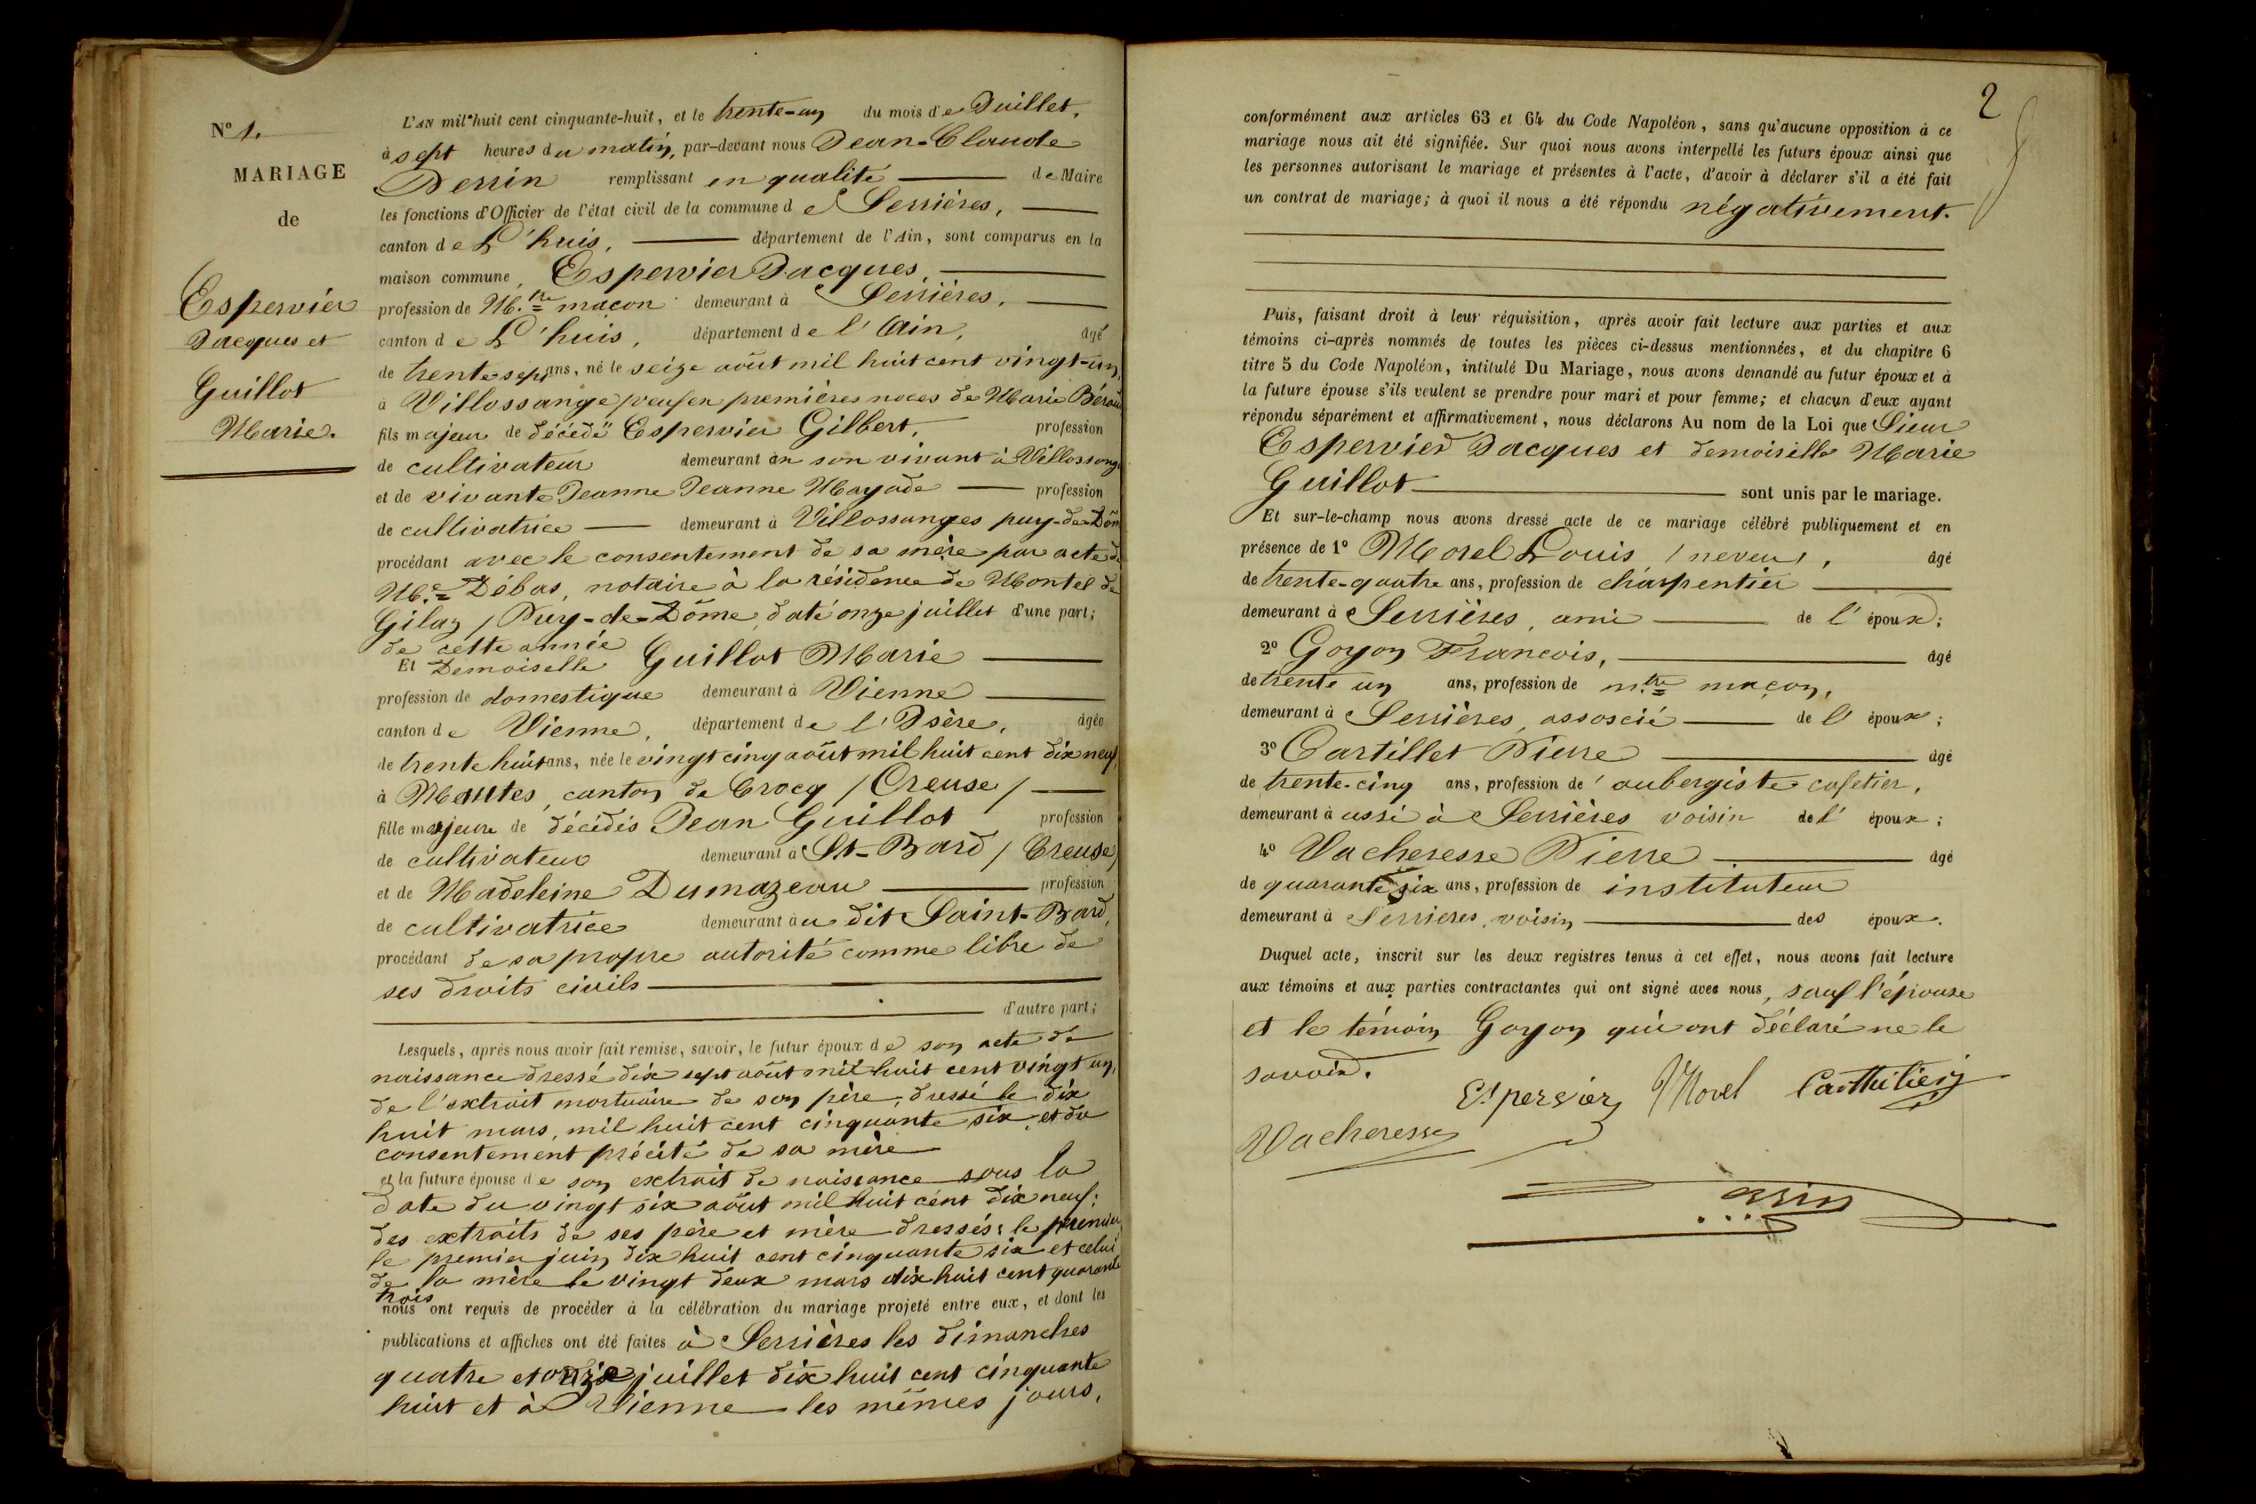 N° 1.
MARIAGE
de
Espervier
Jacques et
Guillot
Marie.
L'AN mil huit cent cinquante-huit, et le trente-un du mois de Juillet,
à sept heures du matin, par-devant nous Jean-Claude
remplissant en qualité de Maire
les fonctions d'Officier de l'état civil de la commune de Serrières,
canton de L'huis, département de l'Ain, sont comparus en la
maison commune, Espervier Jacques,
profession de M.tre maçon demeurant à Serrières,
canton de L'huis, département de l'Ain, âgé
de trente sept ans, né le seize août mil huit cent vingt-un,
à Villossange veuf en premières noces de Marie
fils majeur de décédé Espervier Gilbert, profession
de cultivateur demeurant en son vivant à Villossange
et de vivante Jeanne Jeanne Mayade profession
de cultivatrice demeurant à Villossanges puy-de-Dôm
procédant avec le consentement de sa mère par acte de
M.e Débas, notaire à la résidence de Montel de
Gilaz / Puy-de-Dôme, daté onze juillet d'une part;
de cette année
Et Demoiselle Guillot Marie
profession de domestique demeurant à Vienne
canton de Vienne, département de l'Isère, âgée
de trente huit ans, née le vingt cinq août mil huit cent dix neuf,
à Mautes, canton de Crocq / Creuse /
fille majeure de décédés Jean Guillot profession
de cultivateur demeurant à St-Bard / Creuse /
et de Madeleine Dumazeau profession
de cultivatrice demeurant au dit Saint-Bard,
procédant de sa propre autorité comme libre de
ses droits civils
d'autre part;
Lesquels, après nous avoir fait remise, savoir, le futur époux de son acte de
naissance dressé dix sept août mil huit cent vingt un,
de l'extrait mortuaire de son père, dressé le dix
huit mars, mil huit cent cinquante six, et du
consentement précité de sa mère
et la future épouse de son extrait de naissance sous la
date du vingt six août mil huit cent dix neuf;
des extraits de ses père et mère dressés: le premier,
le premier juin dix huit cent cinquante six et celui
de la mère le vingt deux mars dix huit cent quarante
trois
nous ont requis de procéder à la célébration du mariage projeté entre eux, et dont les
publications et affiches ont été faites à Serrières les dimanches
quatre et onze juillet dix huit cent cinquante
huit et à Vienne les mêmes jours,
2
conformément aux articles 63 et 64 du Code Napoléon, sans qu'aucune opposition à ce
mariage nous ait été signifiée. Sur quoi nous avons interpellé les futurs époux ainsi que
les personnes autorisant le mariage et présentes à l'acte, d'avoir à déclarer s'il a été fait
un contrat de mariage; à quoi il nous a été répondu négativement.
Puis, faisant droit à leur réquisition, après avoir fait lecture aux parties et aux
témoins ci-après nommés de toutes les pièces ci-dessus mentionnées, et du chapitre 6
titre 5 du Code Napoléon, intitulé Du Mariage, nous avons demandé au futur époux et à
la future épouse s'ils veulent se prendre pour mari et pour femme; et chacun d'eux ayant
répondu séparément et affirmativement, nous déclarons Au nom de la Loi que Sieur
Espervier Jacques et demoiselle Marie
Guillot sont unis par le mariage.
Et sur-le-champ nous avons dressé acte de ce mariage célébré publiquement et en
présence de 1° Morel Louis / neveu /, âgé
de trente-quatre ans, profession de charpentier
demeurant à Serrières, ami de l'époux;
2° Goyon Francois, âgé
de trente un ans, profession de m.tre maçon,
demeurant à Serrières, associé de l'époux;
3° Cartillet Pierre âgé
de trente-cinq ans, profession de aubergiste cafetier,
demeurant à ussi à Serrières voisin de l'époux;
4° Vacheresse Pierre âgé
de quarante six ans, profession de instituteur
demeurant à Serrieres, voisin des époux.
Duquel acte, inscrit sur les deux registres tenus à cet effet, nous avons fait lecture
aux témoins et aux parties contractantes qui ont signé avec nous, sauf l'épouse
et le témoin Goyon qui ont déclaré ne le
savoir.
Espervier Morel
Vacheresse